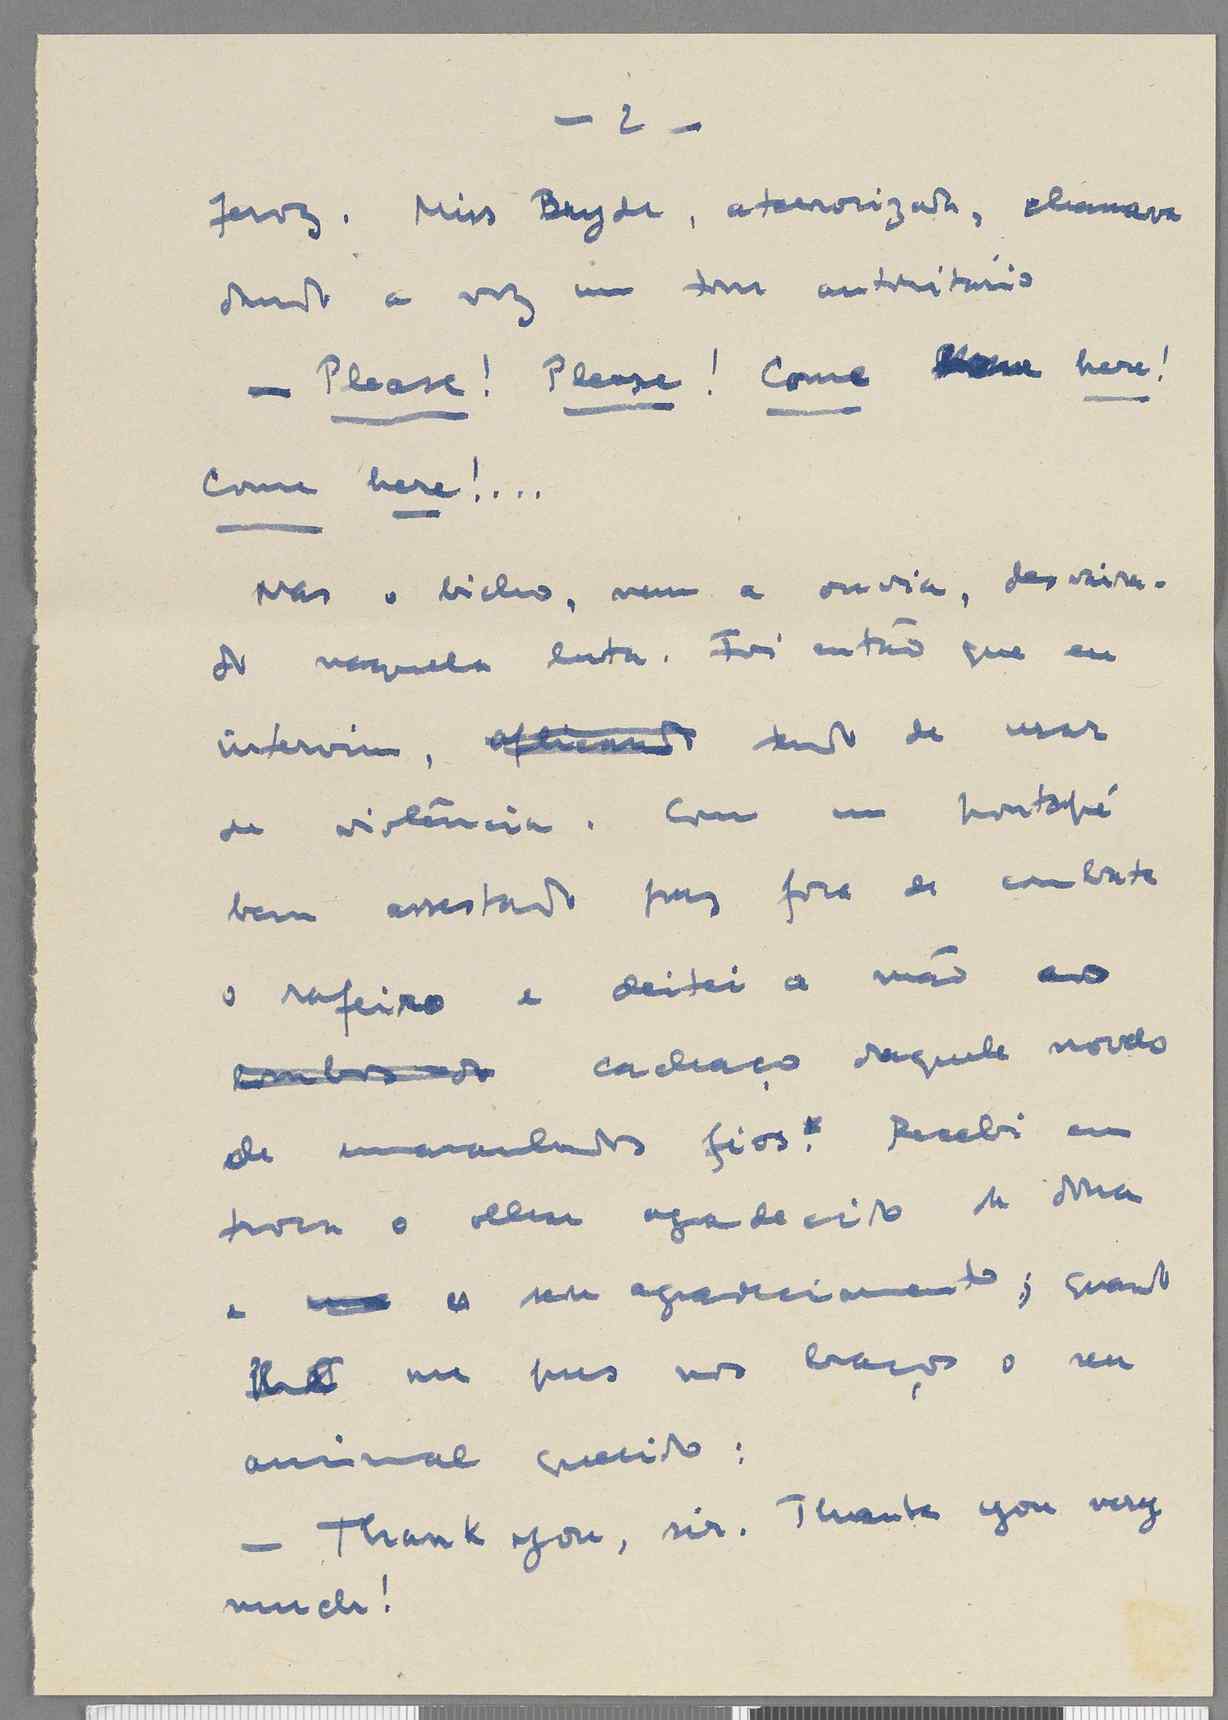 – 2 –
feroz. Miss Bryde, aterrorizada, chamava
dando a voz um tom autoritário
– Please! Please! Come here!
Come here!....
Mas o bicho, nem a ouvia, desvaira-
do naquela luta. Foi então que eu
intervim, aplicando tendo de usar
de violência. Com um pontapé
bem assestado pus fora de combate
o rafeiro e deitei a mão ao
lombos do cachaço daquele novelo
de emaranhados fios. Recebi em
troca o olhar agradecido da dona
e o seu agradecimento; quando
me pus nos braços o seu
animal querido:
– Thank you, sir. Thank you very
much!